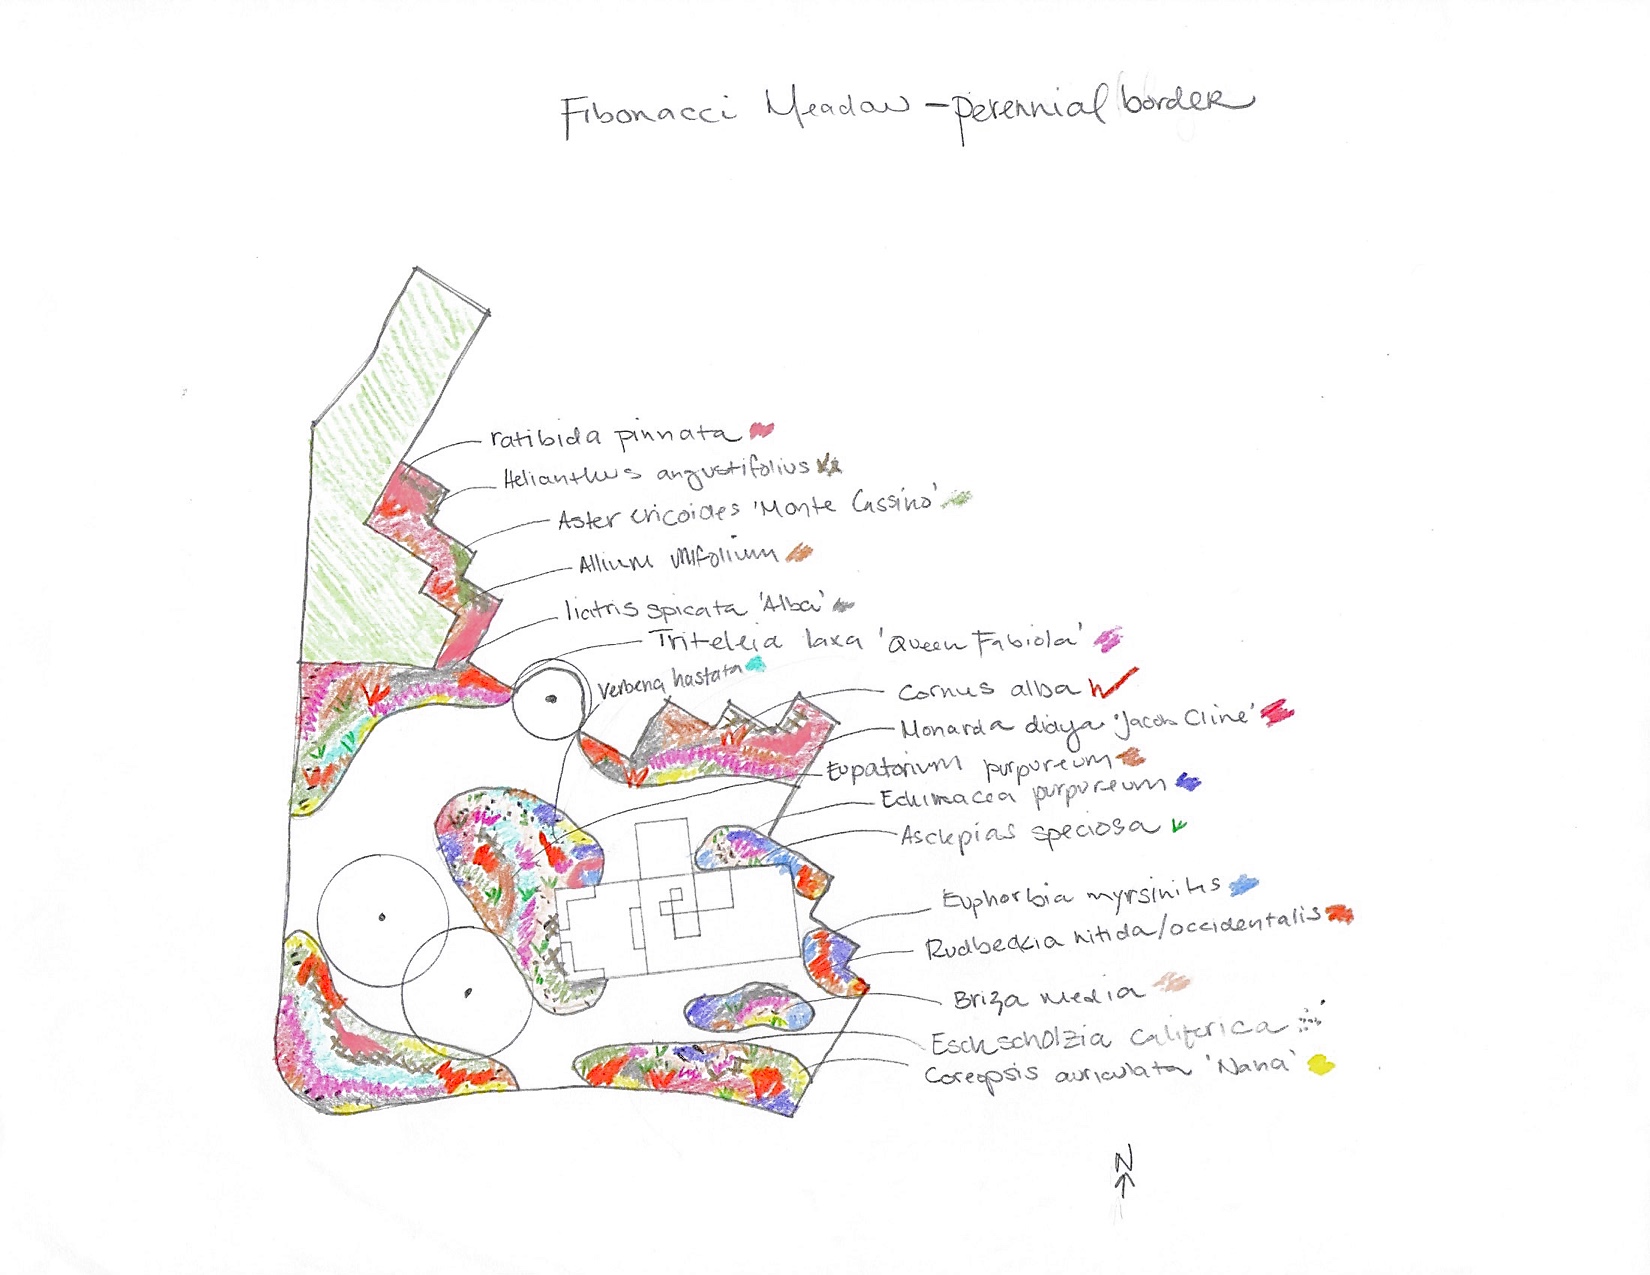 Fibonacci Meadow - perennial border
ratibida pinnata
Helianthus angustifolius
Aster ericoides 'Monte Cassino'
Allium unifolium
liatris spicata 'Alba'
Triteleia laxa 'Queen Fabiola'
Verbena hastata
Cornus alba
Monarda didya 'Jacob Cline'
Eupatorium purpureum
Echinacea purpureum
Asclepias speciosa
Euphorbia myrsinitis
Rudbeckia nitida/occidentalis
Briza media
Eschscholzia califorica
Coreopsis auriculata 'Nana'
N